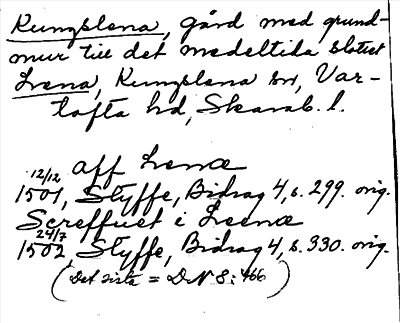 Kungslena, gård med grund-
mur till det medeltida slottet
Lena, Kungslena sn, Var-
tofta hd, Skarab. l.
aff Lenæ
12/12
1501, Styffe, Bidrag 4, s. 299. orig.
Screffuet i Leenæ
24/7
1502, Styffe, Bidrag 4, s. 330. orig.
(Det sista = DN 8: 466)